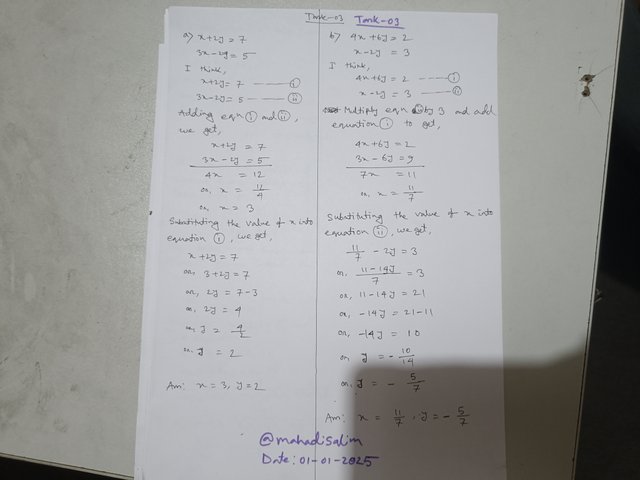 Task-03 Task-03
a) x+2y = 7
3x-2y = 5
I think,
x+2y = 7 ——— (i)
3x-2y = 5 ——— (ii)
Adding eqn (i) and (ii),
we get,
x+2y = 7
3x-2y = 5
4x = 12
or, x = 12/4
or, x = 3
Substituting the value of x into
equation (i), we get,
x+2y = 7
or, 3+2y = 7
or, 2y = 7-3
or, 2y = 4
or, y = 4/2
or, y = 2
Ans: x = 3, y = 2
b) 4x+6y = 2
x-2y = 3
I think,
4x+6y = 2 ——— (i)
x-2y = 3 ——— (ii)
Multiply eqn (ii) by 3 and add
equation (i) to get,
4x+6y = 2
3x-6y = 9
7x = 11
or, x = 11/7
Substituting the value of x into
equation (ii), we get,
11/7 - 2y = 3
or, 11-14y/7 = 3
or, 11-14y = 21
or, -14y = 21-11
or, -14y = 10
or, y = - 10/14
or, y = - 5/7
Ans: x = 11/7, y = - 5/7
@mahadisalim
Date: 01-01-2025